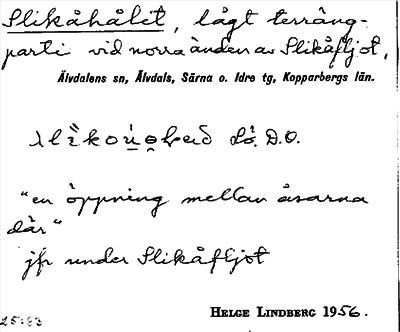 Slikåhålet, lågt terräng-
parti vid norra änden av Slikåfljot.
Älvdalens sn, Älvdals, Särna o. Idre tg, Kopparbergs län.
D.O.
"en öppning mellan åsarna
där"
jfr under Slikåfljot
25:83
HELGE LINDBERG 1956.